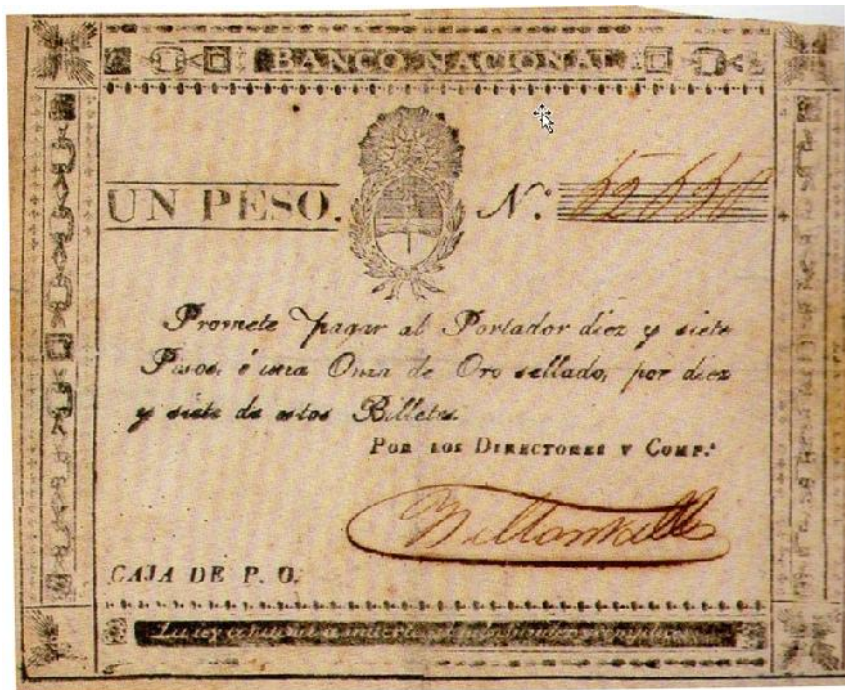 BANCO NACIONAL
UN PESO.
N.º
Promete pagar al Portador diez y siete
Pesos, ó una Onza de Oro sellado, por diez
y siete de estos Billetes.
POR LOS DIRECTORES Y COMP.ª
CAJA DE P. O.
La ley